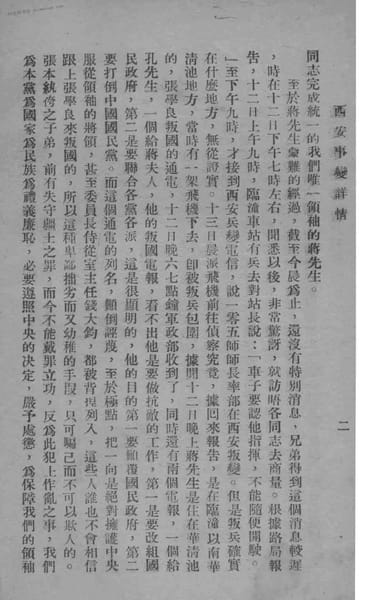 西安事變詳情
二
同志完成統一的我們唯一領袖的蔣先生。
至於蔣先生蒙難的經過，截至今晨爲止，還沒有特別消息，兄弟得到這個消息較遲
，時在十二日下午七時左右，聞悉以後，非常驚訝，就訪晤各同志去商量。根據路局報
告，十二日上午九時，臨潼車站有兵去對站長說：「車子要認他指揮，不能隨便開駛。
」至下午九時，才接到西安兵變電信，說一零五師師長率部在西安叛變。但是叛兵確實
在什麽地方，無從證實。十三日晨派飛機前往偵察究竟，據回來報告，是在臨潼以南華
清池地方，當時有一架飛機下去，卽被叛兵包圍，據聞十二日晚上蔣先生是住在華清池
的，張學良叛國的通電，十二日晚六七點鐘軍政部收到了，同時還有兩個電報，一個給
孔先生，一個給蔣夫人，他的叛國電報，看不出他是要做抗敵的工作，第一是要改組國
民政府，第二是要聯合各黨各派，這是很顯明的，他的目的第一要顚覆國民政府，第二
要打倒中國國民黨。而這個通電的列名，顚倒誣衊，至於極點，把一向是絕對擁護中央
服從領袖的將領，甚至委員長侍從室主任錢大鈞，都被背捏列入，這些人誰也不會相信
跟上張學良來叛國的，所以這種卑鄙拙劣而又幼稚的手叚，只可騙己而不可以欺人的。
張本統袴之子弟，前有失守疆土之罪，而今不能戴罪立功，反爲此犯上作亂之事，我們
爲本黨爲國家爲民族爲禮義廉恥，必要遵照中央的决定，嚴予處懲，爲保障我們的領袖